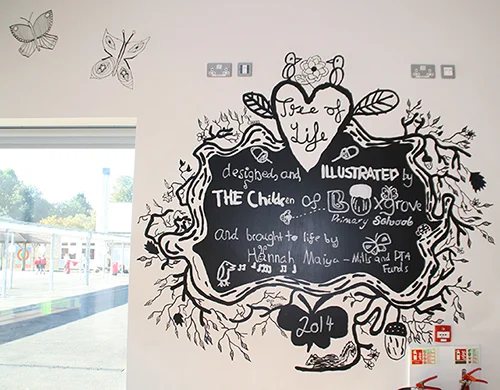 Tree of
Life
designed and ILLUSTRATED by
THE Children of Boxgrove
Primary School
and brought to life by
Hannah Maiya - Mills and PTA
Funds
2014